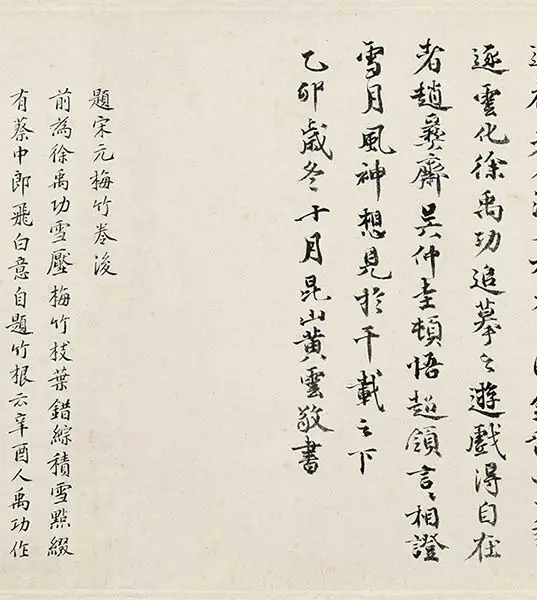 逐雲化徐禹功追摹之遊戲得自在
者趙彝齋吳仲圭頓悟超領言〻相證
雪月風神想見於千載之下
乙卯歲冬十月昆山黃雲敬書
題宋元梅竹卷後
前為徐禹功雪壓梅竹枝葉錯綜積雪點綴
有蔡中郎飛白意自題竹根云辛酉人禹功作